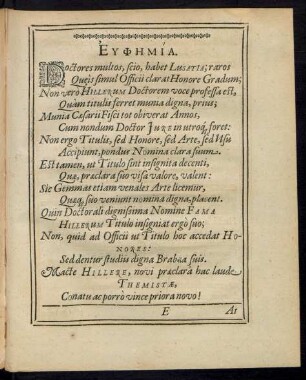 ΕΥΦΗΜΙΑ.
Doctores multos, scio, habet LUSATIS; raros
Queîs simul Officii clarat Honore Gradum;
Non verò HILLERUM Doctorem voce professa est,
Quàm titulis ferret munia digna, prius;
Munia Cæsarii Fisci tot obiverat Annos,
Cum nondum Doctor JURE in utroq; foret:
Non ergo Titulis, sed Honore, sed Arte, sed Usu
Accipiunt, pondus Nomina clara suum.
Est tamen, ut Titulo sint insignita decenti,
Quæ, præclara suo visa valore, valent:
Sic Gemmas etiam venales Arte licemur,
Quæq; suo veniunt nomina digna, placent.
Quin Doctorali dignissima Nomine FAMA
HILLERUM Titulo insigniat ergò suo;
Non, quid ad Officii ut Titulo hoc accedat HO-
NORES:
Sed dentur studiis digna Brabea suis.
Macte HILLERE, novi præclarâ hac laude
THEMISTÆ,
Conatu ac porrò vince priora novo!
E At